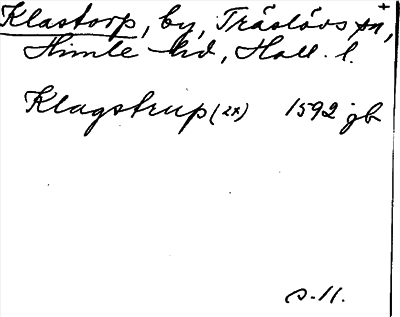 Klastorp, by, Träslövs sn+,
Himle hd, Hall. l.
Klagstrup (2x) 1592 jb
s. 11.